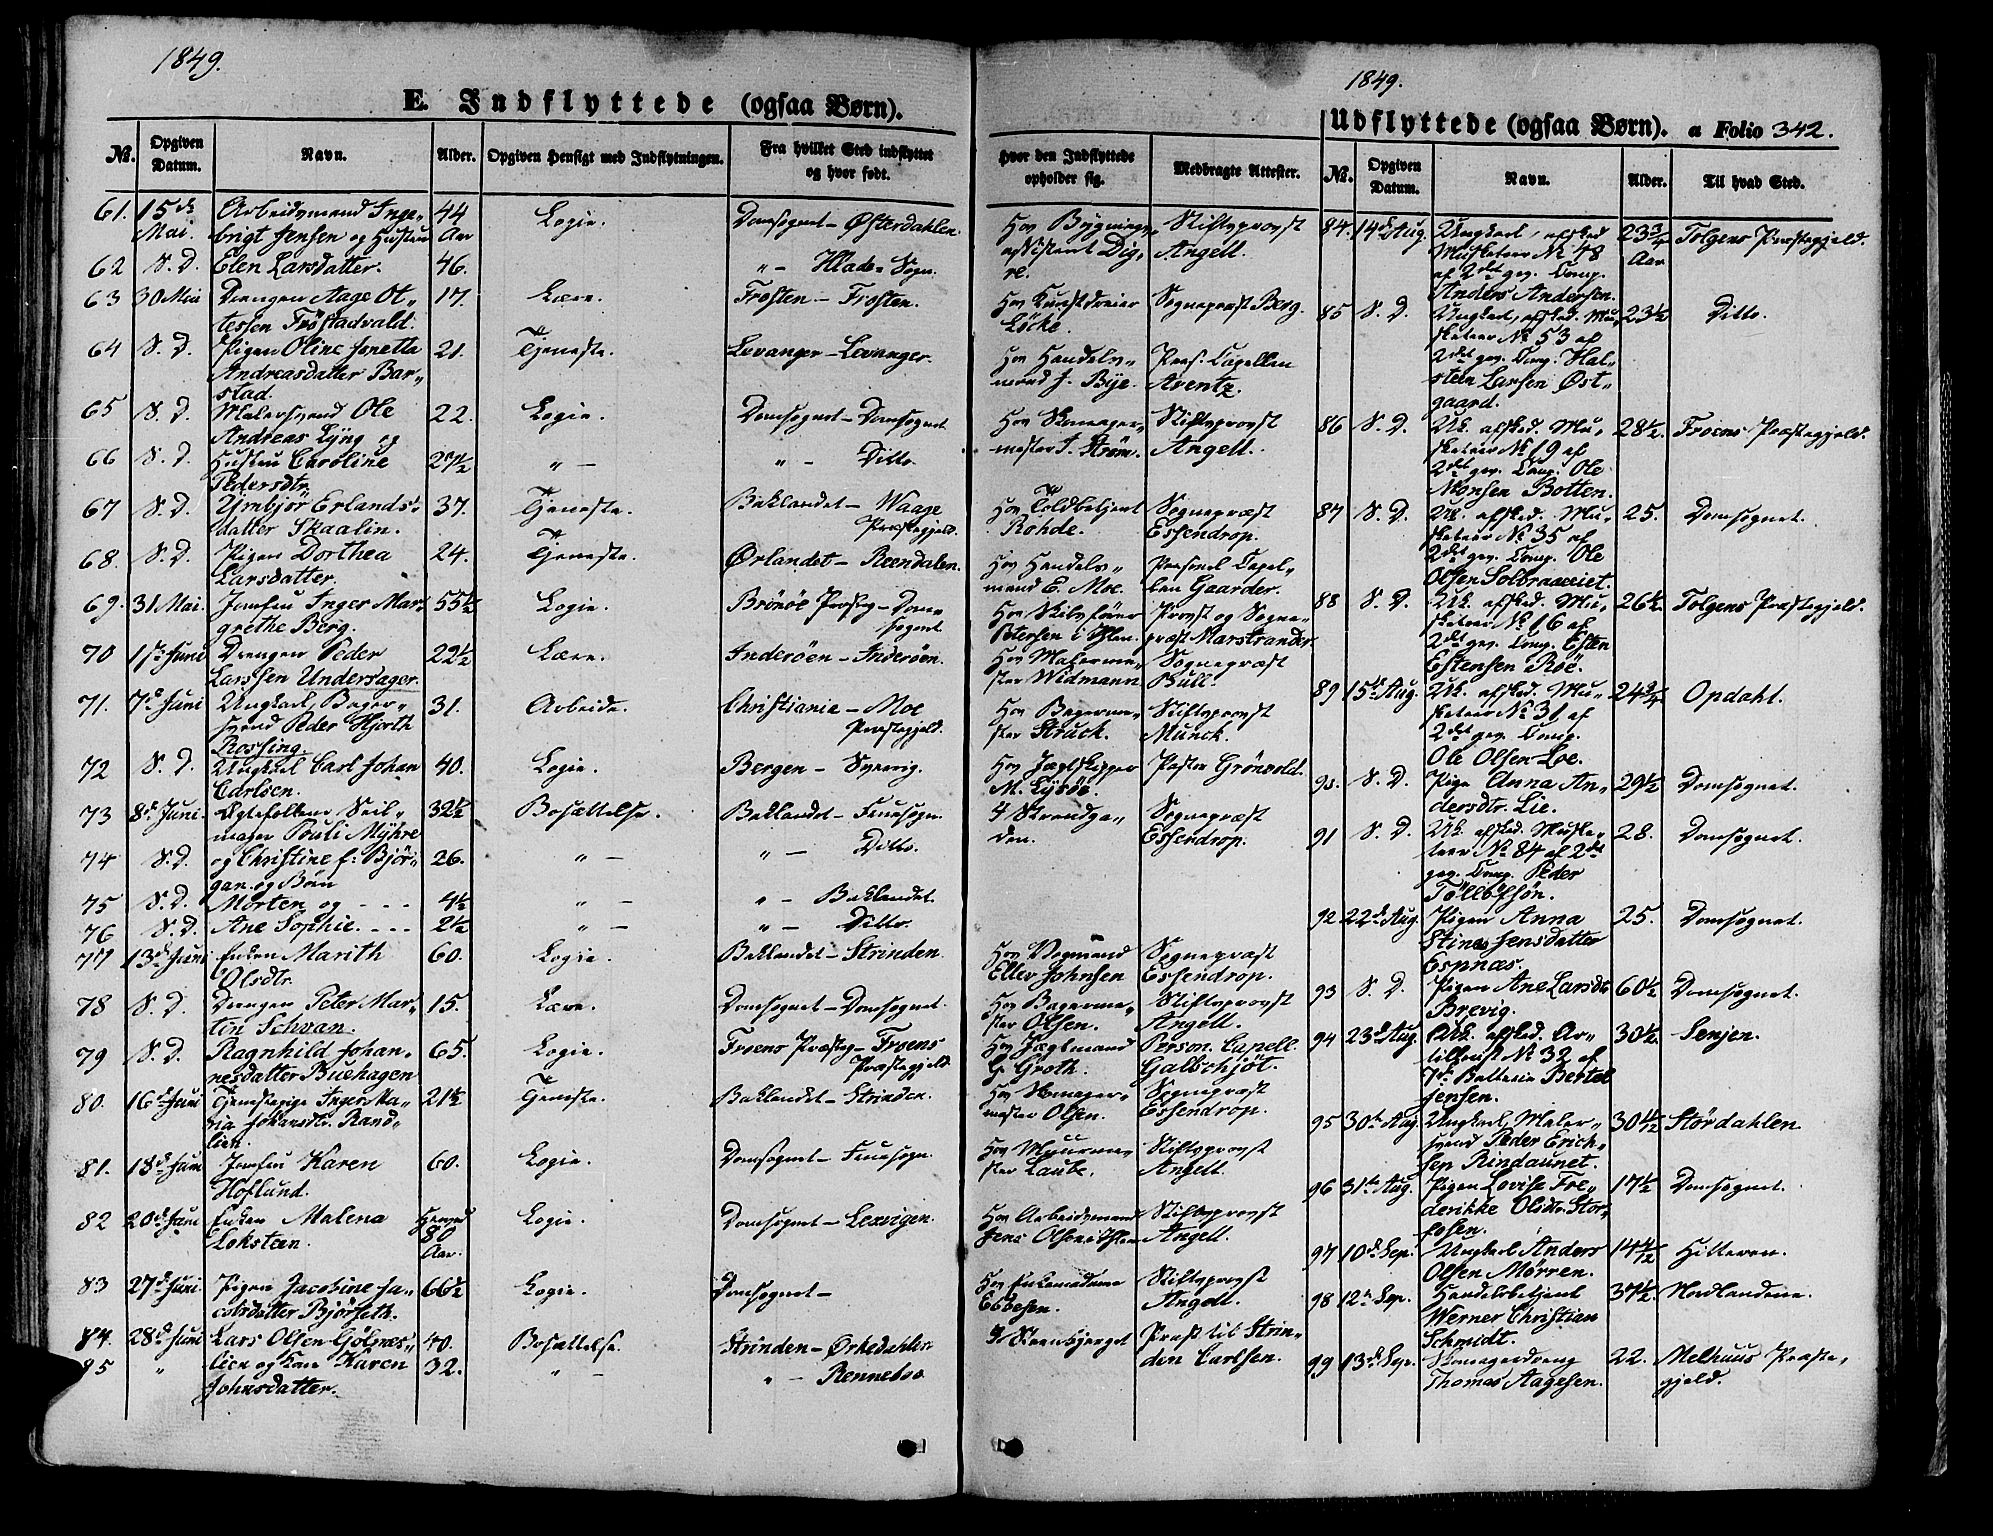 1849.
E. Indflyttede (ogsaa Børn).
No. Opgiven Datum. Navn. Alder. Opgiven Hensigt med Indflytningen. Fra hvilket Sted indflyttet og hvor født. Hvor den Indflyttede opholder sig. Medbragte Attester.
61. 15de Mai. Arbeidsmand Inge-brigt Jensen og Hustru 44 Aar Logie. Domsognet – Østerdahlen. Hos Bygnings-assistent Dig-re. Stiftsprovst Angell.
62 S. D. Elen Larsdatter. 46. " – Hlade-Sogn.
63 30 Mai Drengen Aage Ot-tessen Frøstadvald. 17. Lære. Frosten – Frosten. Hos Kunstdreier Löcke. Sognepræst Berg.
64 S. D. Pigen Oline Jonetta Andreasdatter Bar-stad. 21. Tjeneste. Levanger – Levanger. Hos Handels-mand J. Bye. Pers. Capellan Arentz.
65 S. D. Malersvend Ole Andreas Lyng og 22. Logie. Domsognet – Domsognet Hos Skomager-mester J. Strøm. Stiftsprovst Angell.
66 S. D. Hustru Caroline Pedersdtr. 27½ " – " – Ditto.
67 S. D. Ymbjør Erlands-datter Skaalin. 37. Tjeneste. Baklandet – Waage Præstegjeld. Hos Toldbetjent Rohde. Sognepræst Essendrop.
68. S. D. Pigen Dorthea Larsdatter. 24. Tjeneste. Ørlandet – Reendalen. Hos Handels-mand E. Moe. Personel Capel-lan Gaarder.
69. 31 Mai. Jomfru Inger Mar-grethe Berg. 55½ Logie. Brönöe Præsteg – Dom-sognet Hos Skibsfører Petersen i Ilen. Provst og Sogne-præst Marstrander.
70 1ste Juni Drengen Peder Larssen Undersager. 22½ Lære. Inderöen – Inderöen. Hos Malerme-ster Widmann Sognepræst Bull.
71. 7de Juni Ungkarl, Bager-svend Peder Hjorth Rossing. 31. Arbeide. Christiania – Moe Præstegjeld. Hos Bagerme-ster Struck. Stiftsprovst Munck.
72 S. D. Ungkarl Carl Johan Carlsen. 40. Logie. Bergen – Hos Jagtskipper M. Lysöe. Pastor Grönvold.
73 8de Juni. Ægtefolkene Seil-mager Pouli Myhre 32½ Bosættelse. Baklandet – Fruesogn. 4 Strandga-den. Sognepræst Essendrop.
74 S. D. og Christine f: Bjør-gan og Børn 26. " – " – Ditto.
75 S. D. Morten og - - - 4½ " – " – Baklandet.
76 S. D. Ane Sophie. - - - 2½ " – " – Ditto.
77 13de Juni Enken Marith Olsdtr. 60. Logie. Baklandet – Strinden. Hos Vognmand Ellev Johnsen Sognepræst Essendrop.
78 S. D. Drengen Peter Mar-tin Schvan. 15. Lære. Domsognet – Domsognet. Hos Bagerme-ster Olsen. Stiftsprovst Angell.
79 S. D. Ragnhild Johan-nesdatter Buehagen 65. Logie. Froens Præsteg – Froens Præstegjeld Hos Jagtmand G. Groth. Person. Capell. Galschjöt.
80. 16de Juni Tjenestepige Inger Ma-ria Johansdtr. Rand-lien. 21½ Tjeneste. Baklandet – Strinden. Hos Skomager-mester Olsen. Sognepræst Essendrop.
81. 18de Juni Jomfru Karen Hoflund. 60. Logie. Domsognet – Fruesogn. Hos Muurme-ster Laube. Stiftsprovst Angell.
82 20de Juni Enken Malena Lokstein. 80 Aar. Logie. Domsognet – Lexvigen. Hos Arbeidsmand Jens Olsen i Ilen Stiftsprovst Angell.
83 27de Juni Pigen Jacobine Ja-cobsdatter Bjørseth. 66½ Logie. Domsognet – Hos Enkemadame Ebbesen. Stiftsprovst Angell.
84. 28de Juni Lars Olsen Gölnæs- 40. Bosættelse. Strinden – Ørkedahlen Steenbjerget Præst til Strin-den Carlsen.
85 " lien og Kone Karen Johnsdatter. 32. " – " – Rennebo
1849.
Udflyttede (ogsaa Børn). a Folio 342.
No. Opgiven Datum. Navn. Alder. Til hvad Sted.
84. 14de Aug. Ungkarl, afsked. Musketeer No 48 af 2det gev. Comp. Anders Andersen. 23¾ Aar Tolgens Præstegjeld.
85 S. D. Ungkarl, afsked. Mu-sketeer No 53 af 2det gev. Comp. Hal-stein Larsen Øst-gaard. 23½ Ditto.
86 S. D. Uk. afsked. Mu-sketeer No 19 af 2det gev. Comp. Ole Monsen Botten. 28½. Froens Præstegjeld.
87 S. D. Uk. afsked. Mu-sketeer No 35 af 2det gev. Comp. Ole Olsen Solbraaeiet. 25. Domsognet.
88 S. D. Uk. afsked. Mu-sketeer No 16 af 2det gev. Comp. Esten Estensen Röe. 26½. Tolgens Præstegjeld.
89 15de Aug. Uk. afsked. Mu-sketeer No 31 af 2det gev. Comp. Ole Olsen Loe. 24¾ Opdahl.
90. S. D. Pige Anna An-dersdtr. Lie. 29½ Domsognet.
91 S. D. Uk. afsked. Muske-teer No 84 af 2det gev. Comp. Peder Tøllbølsøn. 28. Domsognet.
92 22de Aug. Pigen Anna Stine Jensdatter Espnæs. 25. Domsognet.
93 S. D. Pigen Ane Larsdtr Brevig. 60½ Domsognet.
94 23de Aug Uk. afsked. Ar-tillerist No 32 af 7de Batterie Bertel Jensen. 30½. Senjen.
95 30te Aug. Ungkarl, Maler-svend Peder Erich-sen Rindaunet. 30 11/12 Stördahlen.
96 31te Aug. Pigen Lovise Fre-derikke Olsdtr. Stor-fosen. 17½ Domsognet.
97 10de Sep. Ungkarl Anders Olsen Mörren. 14½ Hitteren.
98 12te Sep. Handelsbetjent Werner Christian Schmidt. 37½. Nordlandene.
99 13de Sep. Skomagerdreng Thomas Aagesen. 22. Melhuus Præste-gjeld.